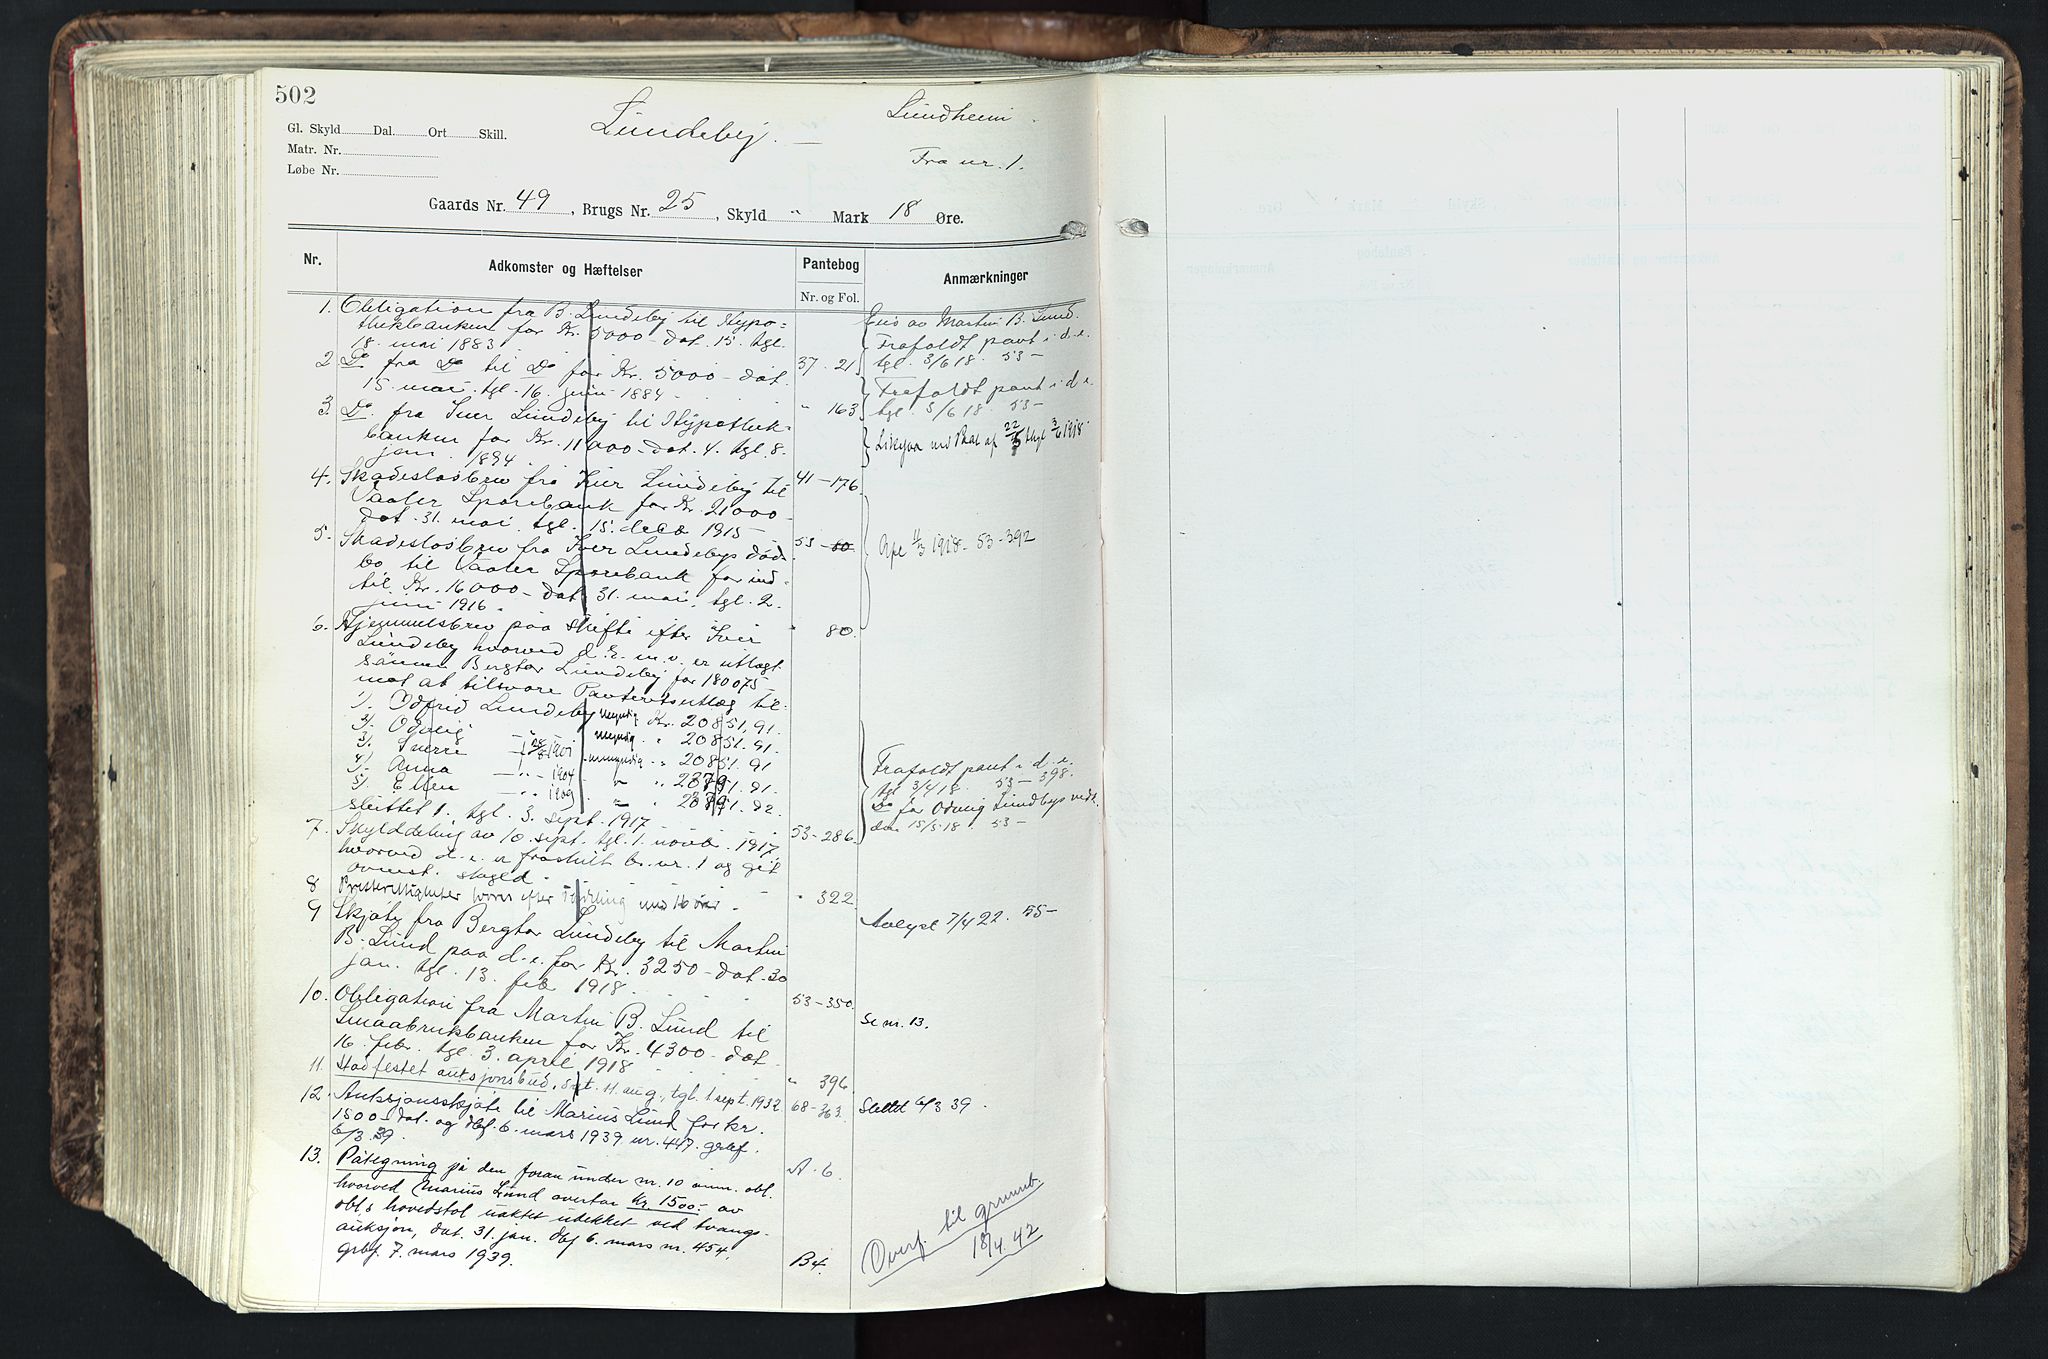 502
Gl. Skyld Dal. Ort Skill.
Matr. Nr.
Løbe Nr.
Lundeby. —
Lundheim
Fra nr. 1.
Gaards Nr. 49, Brugs Nr. 25, Skyld " Mark 18 Øre.
Nr. Adkomster og Hæftelser Pantebog Anmærkninger
Nr. og Fol.
1. Obligation fra B. Lundeby til Hypo=
thekbanken for Kr. 5000 - dat. 15. tgl.
18. mai 1883 37 - 21
2. Do fra Do til Do for Kr. 5000 - dat.
15. mai tgl. 16. juni 1884 - " 163
3. Do. fra Iver Lundeby til Hypothek-
banken for Kr. 11000 - dat. 4. tgl. 8.
jan. 1894 41 - 176
4. Skadesløsbrev fra Iver Lundeby til
Vaaler Sparebank for Kr. 21000 -
dat. 31. mai tgl. 15. 1915 - 53 - 60
5. Skadesløsbrev fra Iver Lundebys døds
bo til Vaaler Sparebank for ind-
til Kr. 16000 - dat. 31. mai, tgl. 2.
juni 1916. " 80.
6. Hjemmelsbrev paa skifte efter Iver
Lundeby hvorved d. E. m. v. er utlagt
sønnen Bergtor Lundeby for 180075 -
mot at tilsvare Panteretsutlæg til
1). Lundeby myndig Kr. 20851.91.
2). Odveig - " - myndig " 20851.91.
3). Sverre - f 1901 umyndig " 20851.91
4). Anna - " - 1904 " " 91.
5). Ellen - " - 1909 " " 92.
sluttet 1., tgl. 3. sept. 1917 53 - 286.
7. Skylddeling av 10. sept. tgl. 1. novbr. 1917,
hvorved d. e. er fraskilt br. nr. 1 og git
ovenst. skyld. " 322
8 efter med 16 øre -
9 Skjøte fra Bergtor Lundeby til Martin
B. Lund paa d. e. for Kr. 3250 - dat. 30
jan. tgl. 13. feb. 1918 53 - 350.
10. Obligation fra Martin B. Lund til
Smaabrukbanken for Kr. 4300 - dat
16. febr. tgl. 3. april 1918 " 396
11. Stadfestet auksjonsbud, dat. 11. aug., tgl. 1 sept. 1932. 68 - 363.
12. Auksjonsskjøte til Marius Lund for kr.
1500 - dat. og dbf. 6. mars 1939 nr. 447. grbf.
6/3.39. A. 6.
13. Påtegning på den foran under nr. 10 anm. obl.
hvorved Marius Lund overtar kr. 1500.- av
obl.s hovedstol uaktet udekket ved tvangs-
auksjon, dat. 31. jan. dbf 6. mars nr. 454.
grbf. 7. mars 1939. B4.
Eies av Martin B. Lund.
Frafaldt pant i d. e.
tgl. 3/6 18. 53 -
Frafaldt pant i d. e.
tgl. 3/6 18. 53 -
3/6 1918
4/3 1918 - 53 - 392
Frafaldt pant i d. e.
tgl 3/4 18. 53 - 398.
Do for Odveig Lundebys vedk.
15/5 18. 53 -
Avlyst 7/4 22. 55 -
Se nr. 13.
Slettet 6/3 39.
Overf. til grunnb.
18/4.42